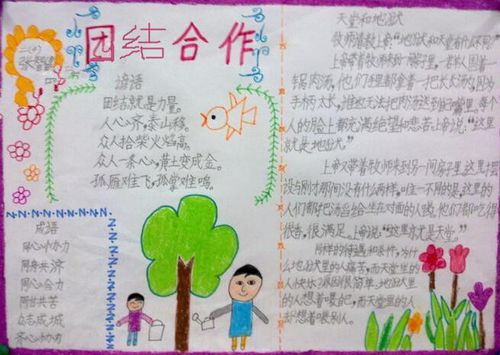 团结合作
二(4)
谚语
团结就是力量。
人心齐,泰山移。
众人拾柴火焰高。
众人一条心,黄土变成金。
孤雁难飞,孤掌难鸣。
成语
同心协力
同舟共济
同心合力
同甘共苦
众志成城
齐心协力
天堂和地狱
牧师请教上帝:"地狱和天堂有什么不同?"
上帝带着牧师来到一间房子里。一群人围着一
锅肉汤,他们手里都拿着一把长长的汤勺,因为
手柄太长,谁也无法把肉汤送到自己嘴里。每个
人的脸上都充满绝望和悲苦。上帝说:"这里
就是地狱。"
上帝又带着牧师来到另一间房子里。这里
没与刚才那间没有什么两样,唯一不同的是,这里的
人们都把汤舀给坐在对面的人喝。他们都吃得
很香,很满足。上帝说:"这里就是天堂。"
同样的待遇和条件,为什
么地狱里的人痛苦,而天堂里的
人快乐?原因很简单:地狱里的
人想着喂自己,而天堂里的人
却想着喂别人。